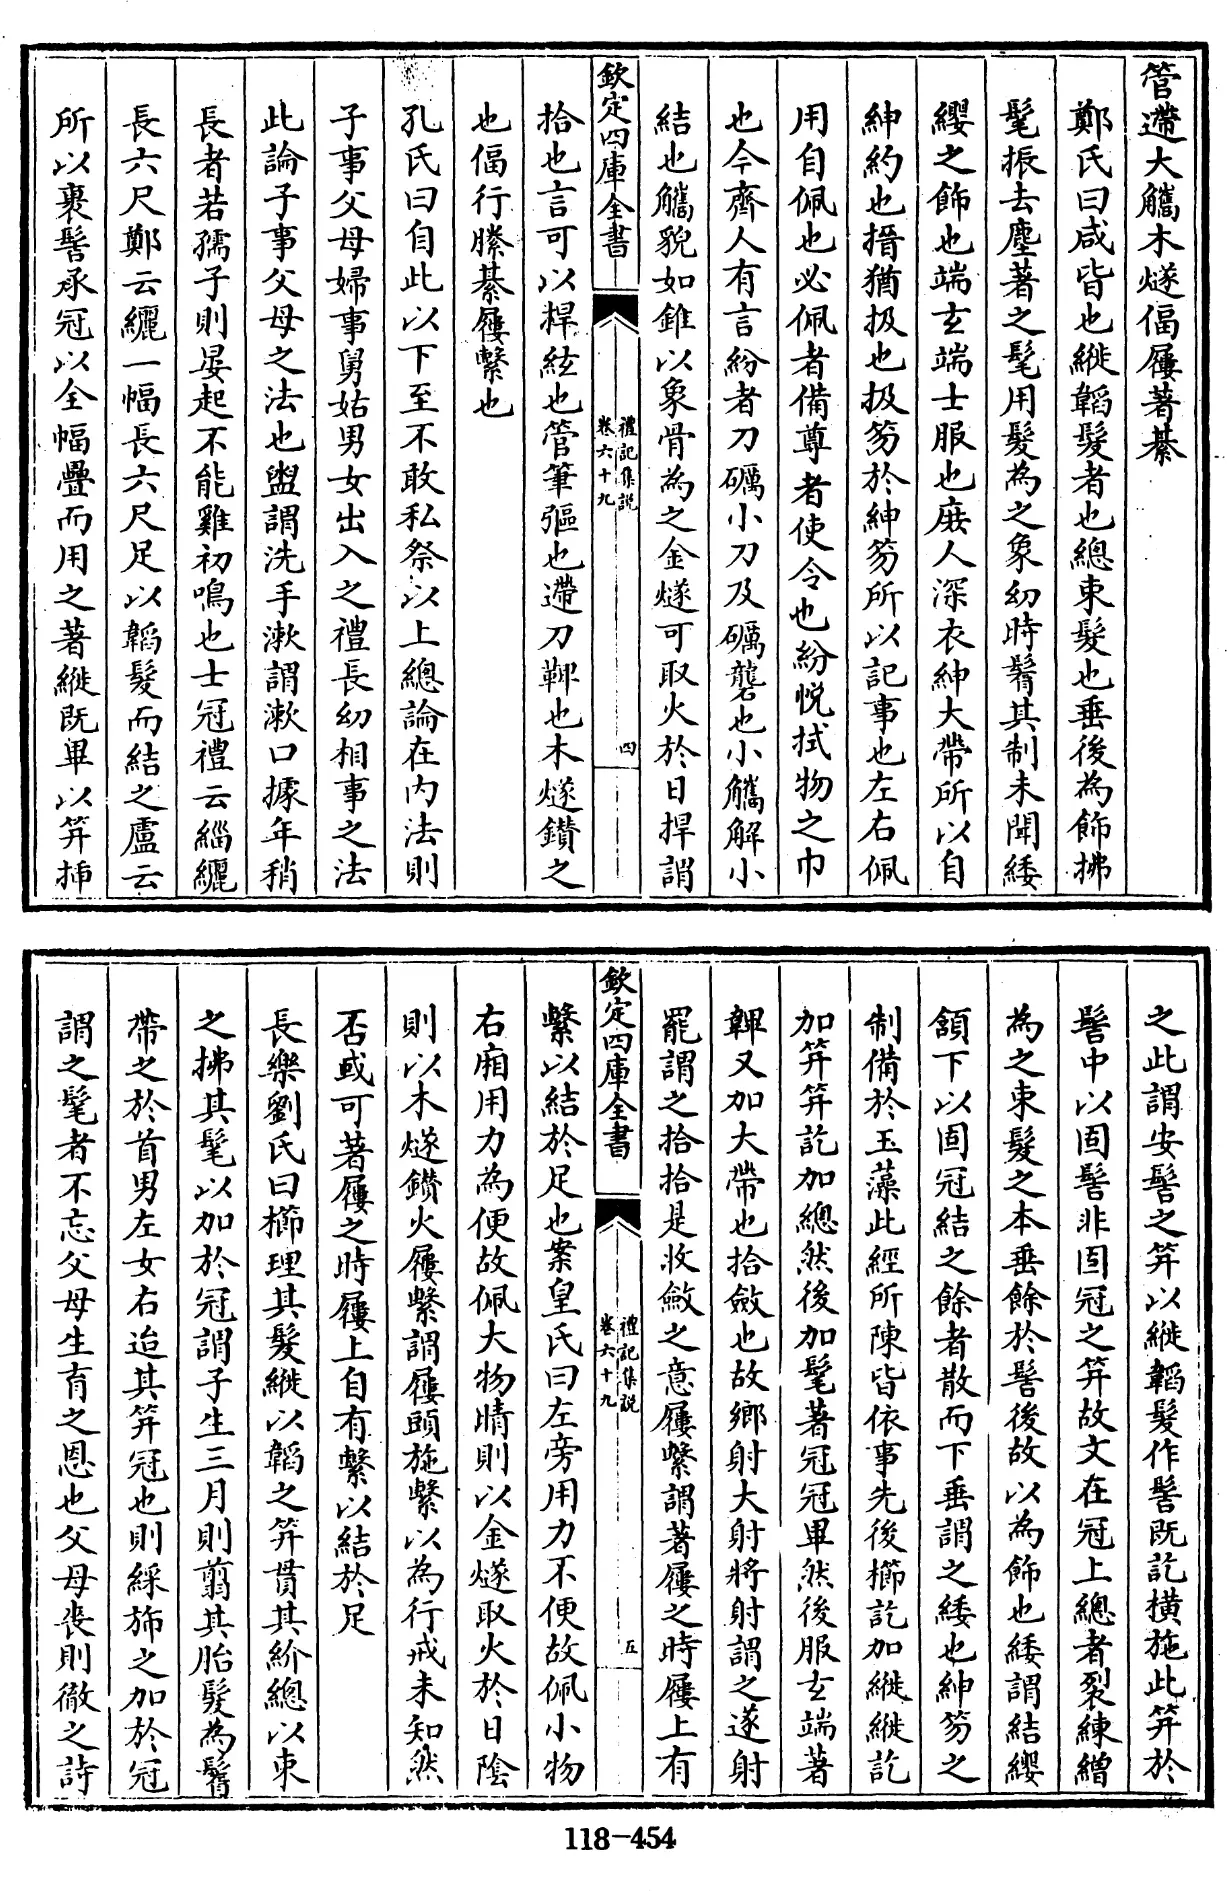 管遰大觿木燧偪屨著綦
鄭氏曰咸皆也縰韜髮者也總束髮也垂後為飾拂
髦振去塵著之髦用髮為之象幼時鬌其制未聞緌
纓之飾也端玄端士服也庶人深衣紳大帶所以自
紳約也搢猶扱也扱笏於紳笏所以記事也左右佩
用自佩也必佩者備尊者使令也紛帨拭物之巾
也今齊人有言紛者刀礪小刀及礪礱也小觿解小
結也觿貌如錐以象骨為之金燧可取火於日捍謂
欽定四庫全書
禮記集說
卷六十九
四
拾也言可以捍絃也管筆彄也遰刀鞞也木燧鑽之
也偪行縢綦屨繫也
孔氏曰自此以下至不敢私祭以上總論在內法則
子事父母婦事舅姑男女出入之禮長幼相事之法
此論子事父母之法也盥謂洗手漱謂漱口據年稍
長者若孺子則晏起不能雞初鳴也士冠禮云緇纚
長六尺鄭云纚一幅長六尺足以韜髮而結之盧云
所以裹髻承冠以全幅疊而用之著縰既畢以笄揷
之此謂安髻之笄以縰韜髮作髻既訖橫施此笄於
髻中以固髻非固冠之笄故文在冠上總者裂練繒
為之束髮之本垂餘於髻後故以為飾也緌謂結纓
頷下以固冠結之餘者散而下垂謂之緌也紳笏之
制備於玉藻此經所陳皆依事先後櫛訖加縰縰訖
加笄笄訖加總然後加髦著冠冠畢然後服玄端著
韠又加大帶也拾斂也故鄉射大射將射謂之遂射
罷謂之拾拾是收斂之意屨繫謂著屨之時屨上有
欽定四庫全書
禮記集說
卷六十九
五
繫以結於足也案皇氏曰左旁用力不便故佩小物
右廂用力為便故佩大物晴則以金燧取火於日陰
則以木燧鑽火屨繫謂屨頭施繫以為行戒未知然
否或可著屨之時屨上自有繫以結於足
長樂劉氏曰櫛理其髮縰以韜之笄貫其紒總以束
之拂其髦以加於冠謂子生三月則翦其胎髮為鬌
帶之於首男左女右迨其笄冠也則綵飾之加於冠
謂之髦者不忘父母生育之恩也父母喪則徹之詩
118-454